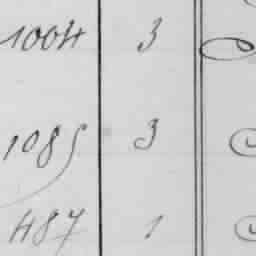 1004 3
1085 3
487 1